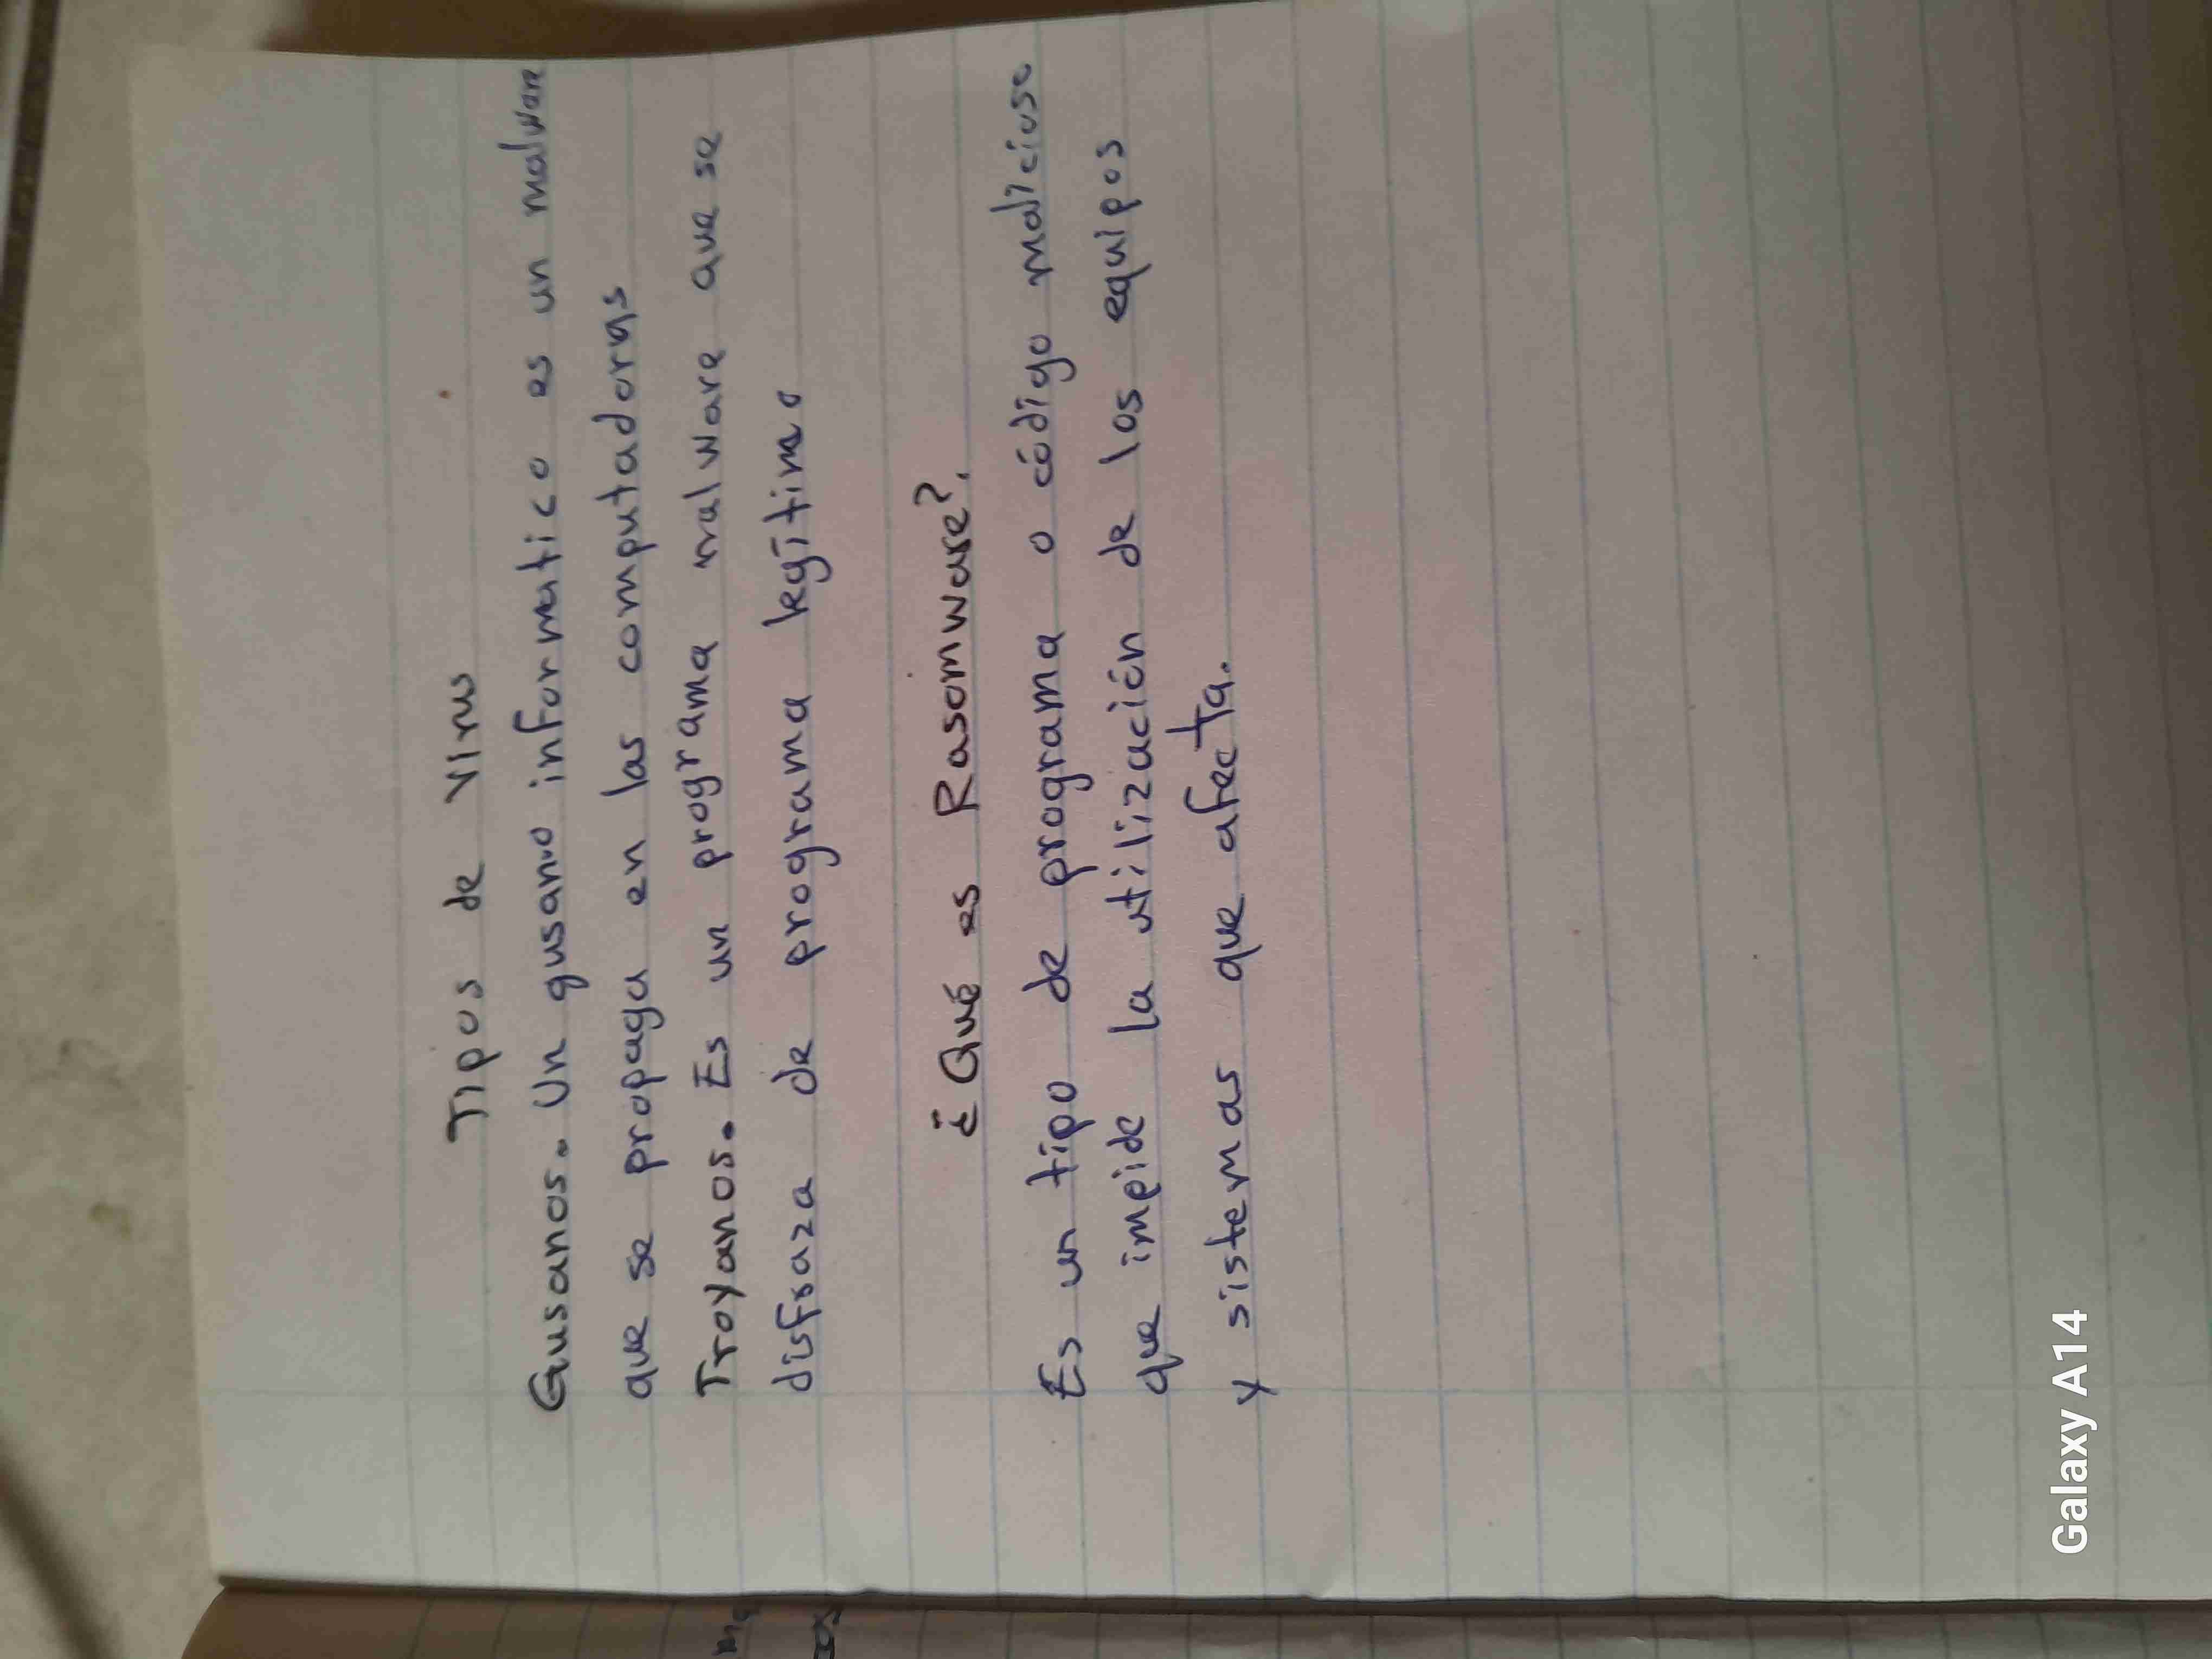 Tipos de Virus
Gusanos. Un gusano informatico es un malware
que se propaga en las computadoras
Troyanos. Es un programa malware que se
disfraza de programa legítimo
¿Qué es Rasomware?.
Es un tipo de programa o código malicioso
que impide la utilización de los equipos
y sistemas que afecta.
Galaxy A14